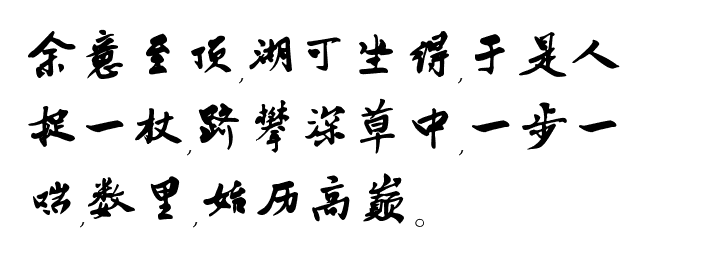 余意至顶,湖可坐得,于是人
捉一杖,跻攀深草中,一步一
喘,数里,始历高巅。